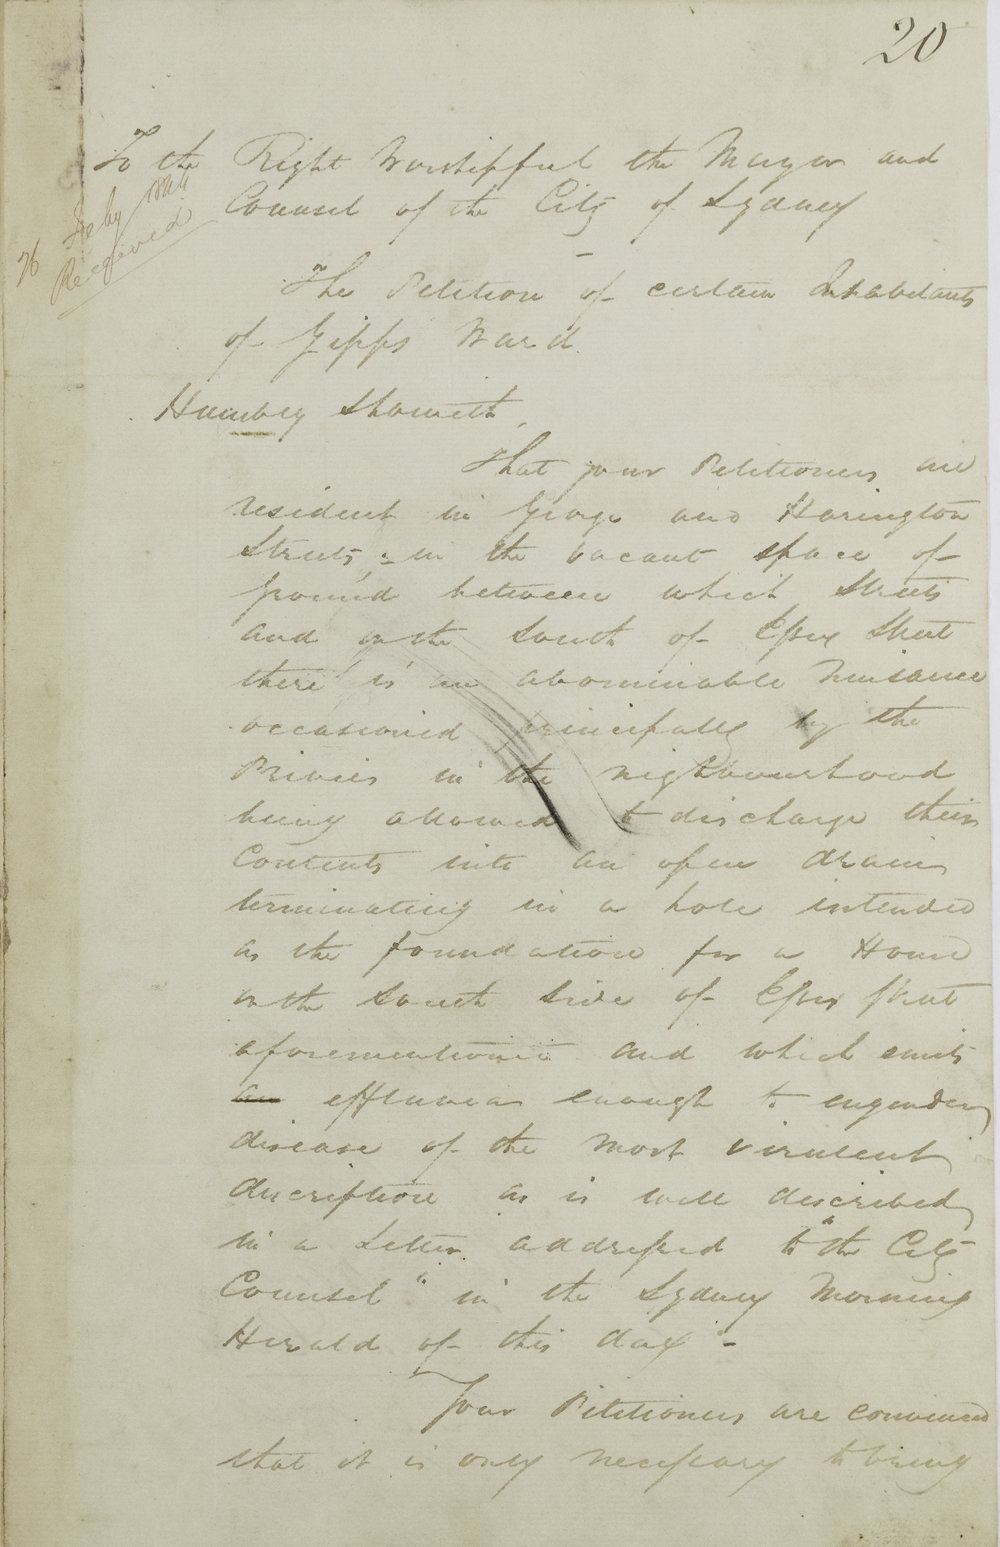 20
To the Right Worshipful the Mayor and
Counsel of the City of Sydney
26 Feby 1844
Received
The Petition of certain Inhabitants
of Gipps Ward.
Humbly Showeth,
That your Petitioners are
resident in George and Harington
Streets, in the vacant space of
ground between which Streets
and on the South of Essex Street
there is an abominable Nuisance
occasioned principally by the
Privies in the neighbourhood
being allowed to discharge their
Contents into an open drain
terminating in a hole intended
as the foundation for a House
on the South side of Essex Street
aforementioned and which emits
an effluvia enough to engender
disease of the most virulent
description as is well described
in a Letter addressed to "the City
Counsel" in the Sydney Morning
Herald of this day -
Your Petitioners are convinced
that it is only necessary to bring